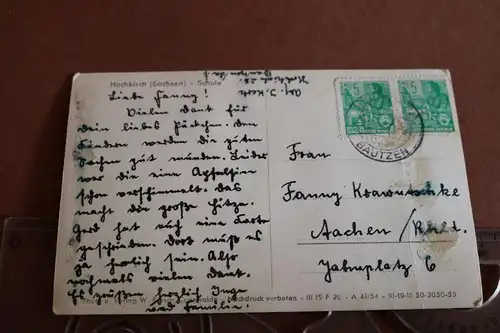 Hochkirch (Sachsen) - Schule
Liebe Fanny!
Vielen Dank für
dein liebes Päckchen. Den
Kindern werden die guten
Sachen gut munden. Leider
war die eine Apfelsine
schon verschimmelt. Das
macht die große Hitze.
Gerd hat mich eine Karte
geschrieben. Dort muß es
ja herrlich sein. Also
nochmals vielen Dank.
Es grüßen herzlich Inge
und Familie.
5
5
BAUTZEN
Frau
Fanny Krawutschke
Aachen / Rhld.
Jahnplatz 6
Nachdruck verboten - III 19 F 20 A - 41/54 - III-19-11 50-2050-55